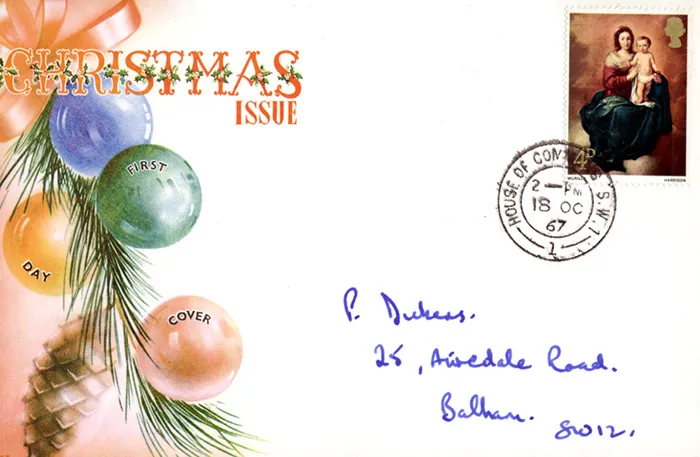 CHRISTMAS
ISSUE
FIRST
DAY
COVER
4D
HARRISON
HOUSE OF COMMONS S.W.1
2 — PM
18 OC
67
1
P. Dickens.
25, Airedale Road.
Balham.
SW12.